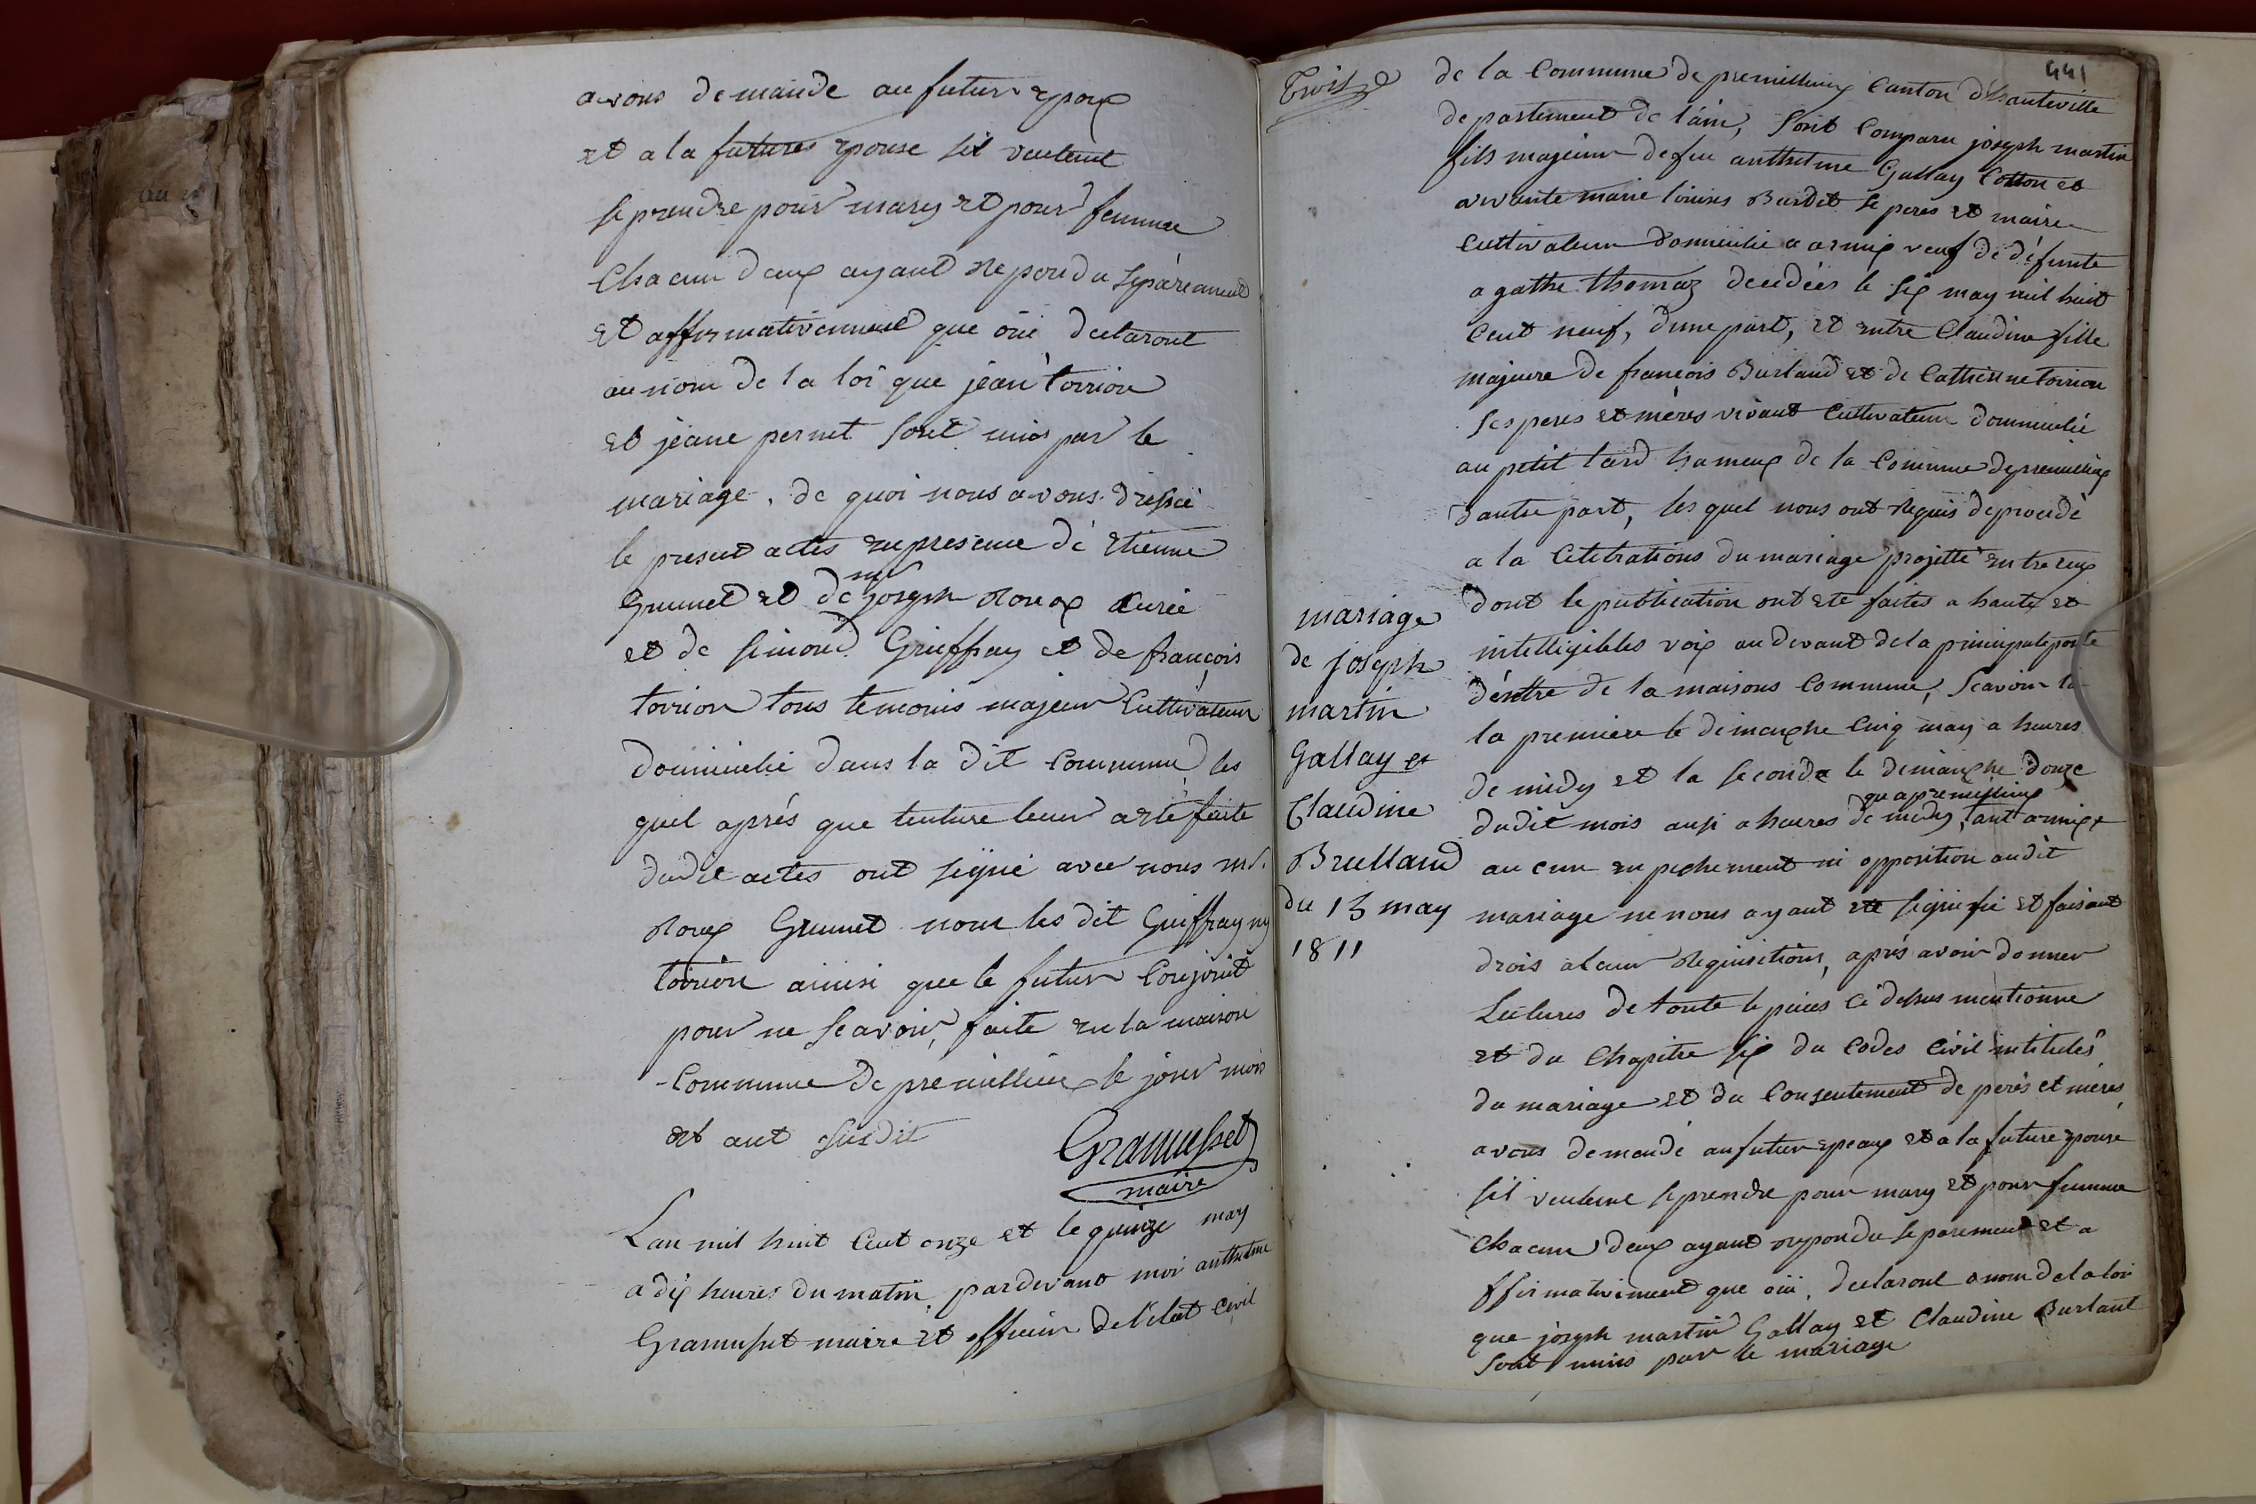 avons demande au futur epoux
et a la futures epouse sil veulent
se prendre pour mary et pour femme
Chacun deux ayant repondu separement
et affirmativement que oüi declaront
au nom de la loi que jean torrion
et jeane pernet sont unis par le
mariage, de quoi nous avons dressé
le present actes en presence de etienne
Grumet et de mr joseph Roux Curée
et de simond Grieffray et de françois
torrion tous temoins majeur Cultivateur
domicilié dans la dit Commune les
quel aprés que lecture leur a eté faite
dudit actes ont signé avec nous mr.
Roux Grumet nom les dit Guiffray ny
torrion ainsi que le futur Conjoint
pour ne scavoir, faite en la maison
Commune de premillieux le jour mois
et ant susdit
Gramusset
maire
Lan mil huit Cent onze et le quinze may
a dix heures du matin, pardevant moi anthelme
Gramusset maire et officier de l'etat Civil
441
Troisze
de la Commune de premillieux Canton d'hauteville
departement de l'ain, sont Comparu joseph martin
fils majeur de feu anthelme Gallay Cotton et
vivante marie louises Burdet se peres et maire
Cultivateur domicilié a armix veuf de défunte
agathe thomaz decedées le six may mil huit
Cent neuf, dune part, et entre Claudine fille
majeure de françois Burland et de Catherine torrion
ses peres et mères vivant Cultivateur domicilié
au petit lard hameux de la Commune de premillieux
dautre part, les quel nous ont requis de procedé
a la Celebrations du mariage projetté entre eux
dont le publication ont ete faites a haute et
intelligibles voix au devant de la principale porte
déntre de la maisons Commune, Scavoir la
la premiere le dimanche Cinq may a heures
de midy et la seconde le dimanche douze
qu a premillieux
dudit mois ausi a heures de midy, tant a armix
aucun enpechement ni opposition audit
mariage ne nous ayant ete signifié et faisant
drois a leur requisitions, aprés avoir donner
Lectures de toute le pieces Ci dessus mentionne
et du Chapitre six du Codes Civil intitulés
du mariage et du Consentement de perés et mères
avons demandé au futur epeaux et a la future epouse
sil veulent se prendre pour mary et pour femme
Chacun deux ayant repondu separement et a
ffirmativement que oüi, declaront a nom de la loi
que joseph martin Gallay et Claudine Burlant
sont unis par le mariage
mariage
de joseph
martin
Gallay et
Claudine
Brulland
du 15 may
1811